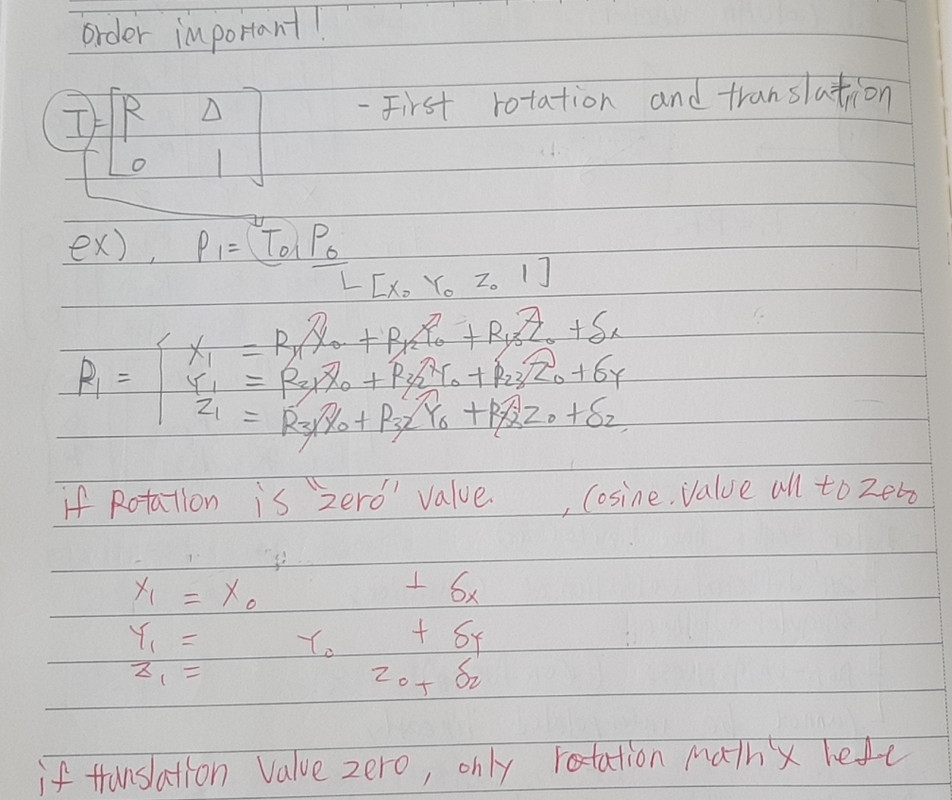 order important!
T = [R Δ
0 1] - First rotation and translation
ex), P₁ = T₀₁ P₀
[X₀ Y₀ Z₀ 1]
X₁ = R₁₁X₀ + R₁₂Y₀ + R₁₃Z₀ + δx
P₁ = Y₁ = R₂₁X₀ + R₂₂Y₀ + R₂₃Z₀ + δY
Z₁ = R₃₁X₀ + R₃₂Y₀ + R₃₃Z₀ + δz
if Rotation is "zero" value. , cosine value all to zero
X₁ = X₀ + δx
Y₁ = Y₀ + δY
Z₁ = Z₀ + δz
if translation value zero, only rotation matrix here